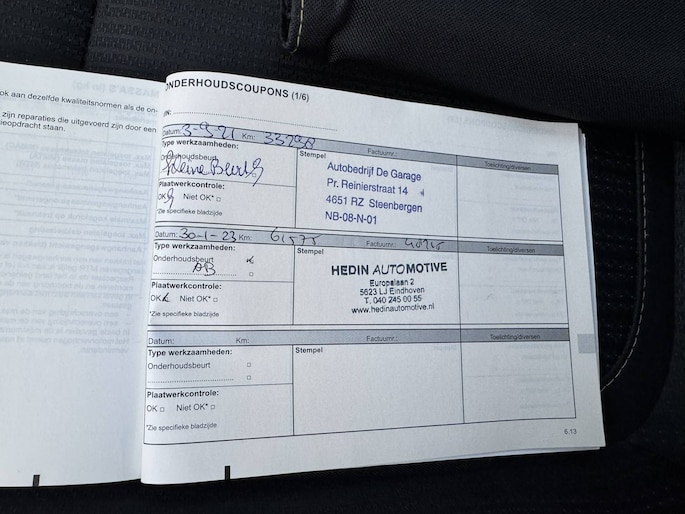 ok aan dezelfde kwaliteitsnormen als de on-
zijn reparaties die uitgevoerd zijn door een
ieopdracht staan.
ONDERHOUDSCOUPONS (1/6)
Datum: 3-9-21 Km: 33798 Factuurnr.:
Type werkzaamheden: Stempel Toelichting/diversen
Onderhoudsbeurt
kleine Beurt
Autobedrijf De Garage
Pr. Reinierstraat 14
4651 RZ Steenbergen
NB-08-N-01
Plaatwerkcontrole:
OK Niet OK* □
*Zie specifieke bladzijde
Datum: 30-1-23 Km: 61575 Factuurnr.:
Type werkzaamheden: Stempel Toelichting/diversen
Onderhoudsbeurt
AB □
HEDIN AUTOMOTIVE
Europalaan 2
5623 LJ Eindhoven
T. 040 245 00 55
www.hedinautomotive.nl
Plaatwerkcontrole:
OK Niet OK* □
*Zie specifieke bladzijde
Datum: Km: Factuurnr.:
Type werkzaamheden: Stempel Toelichting/diversen
Onderhoudsbeurt □
□
Plaatwerkcontrole:
OK □ Niet OK* □
*Zie specifieke bladzijde
6.13